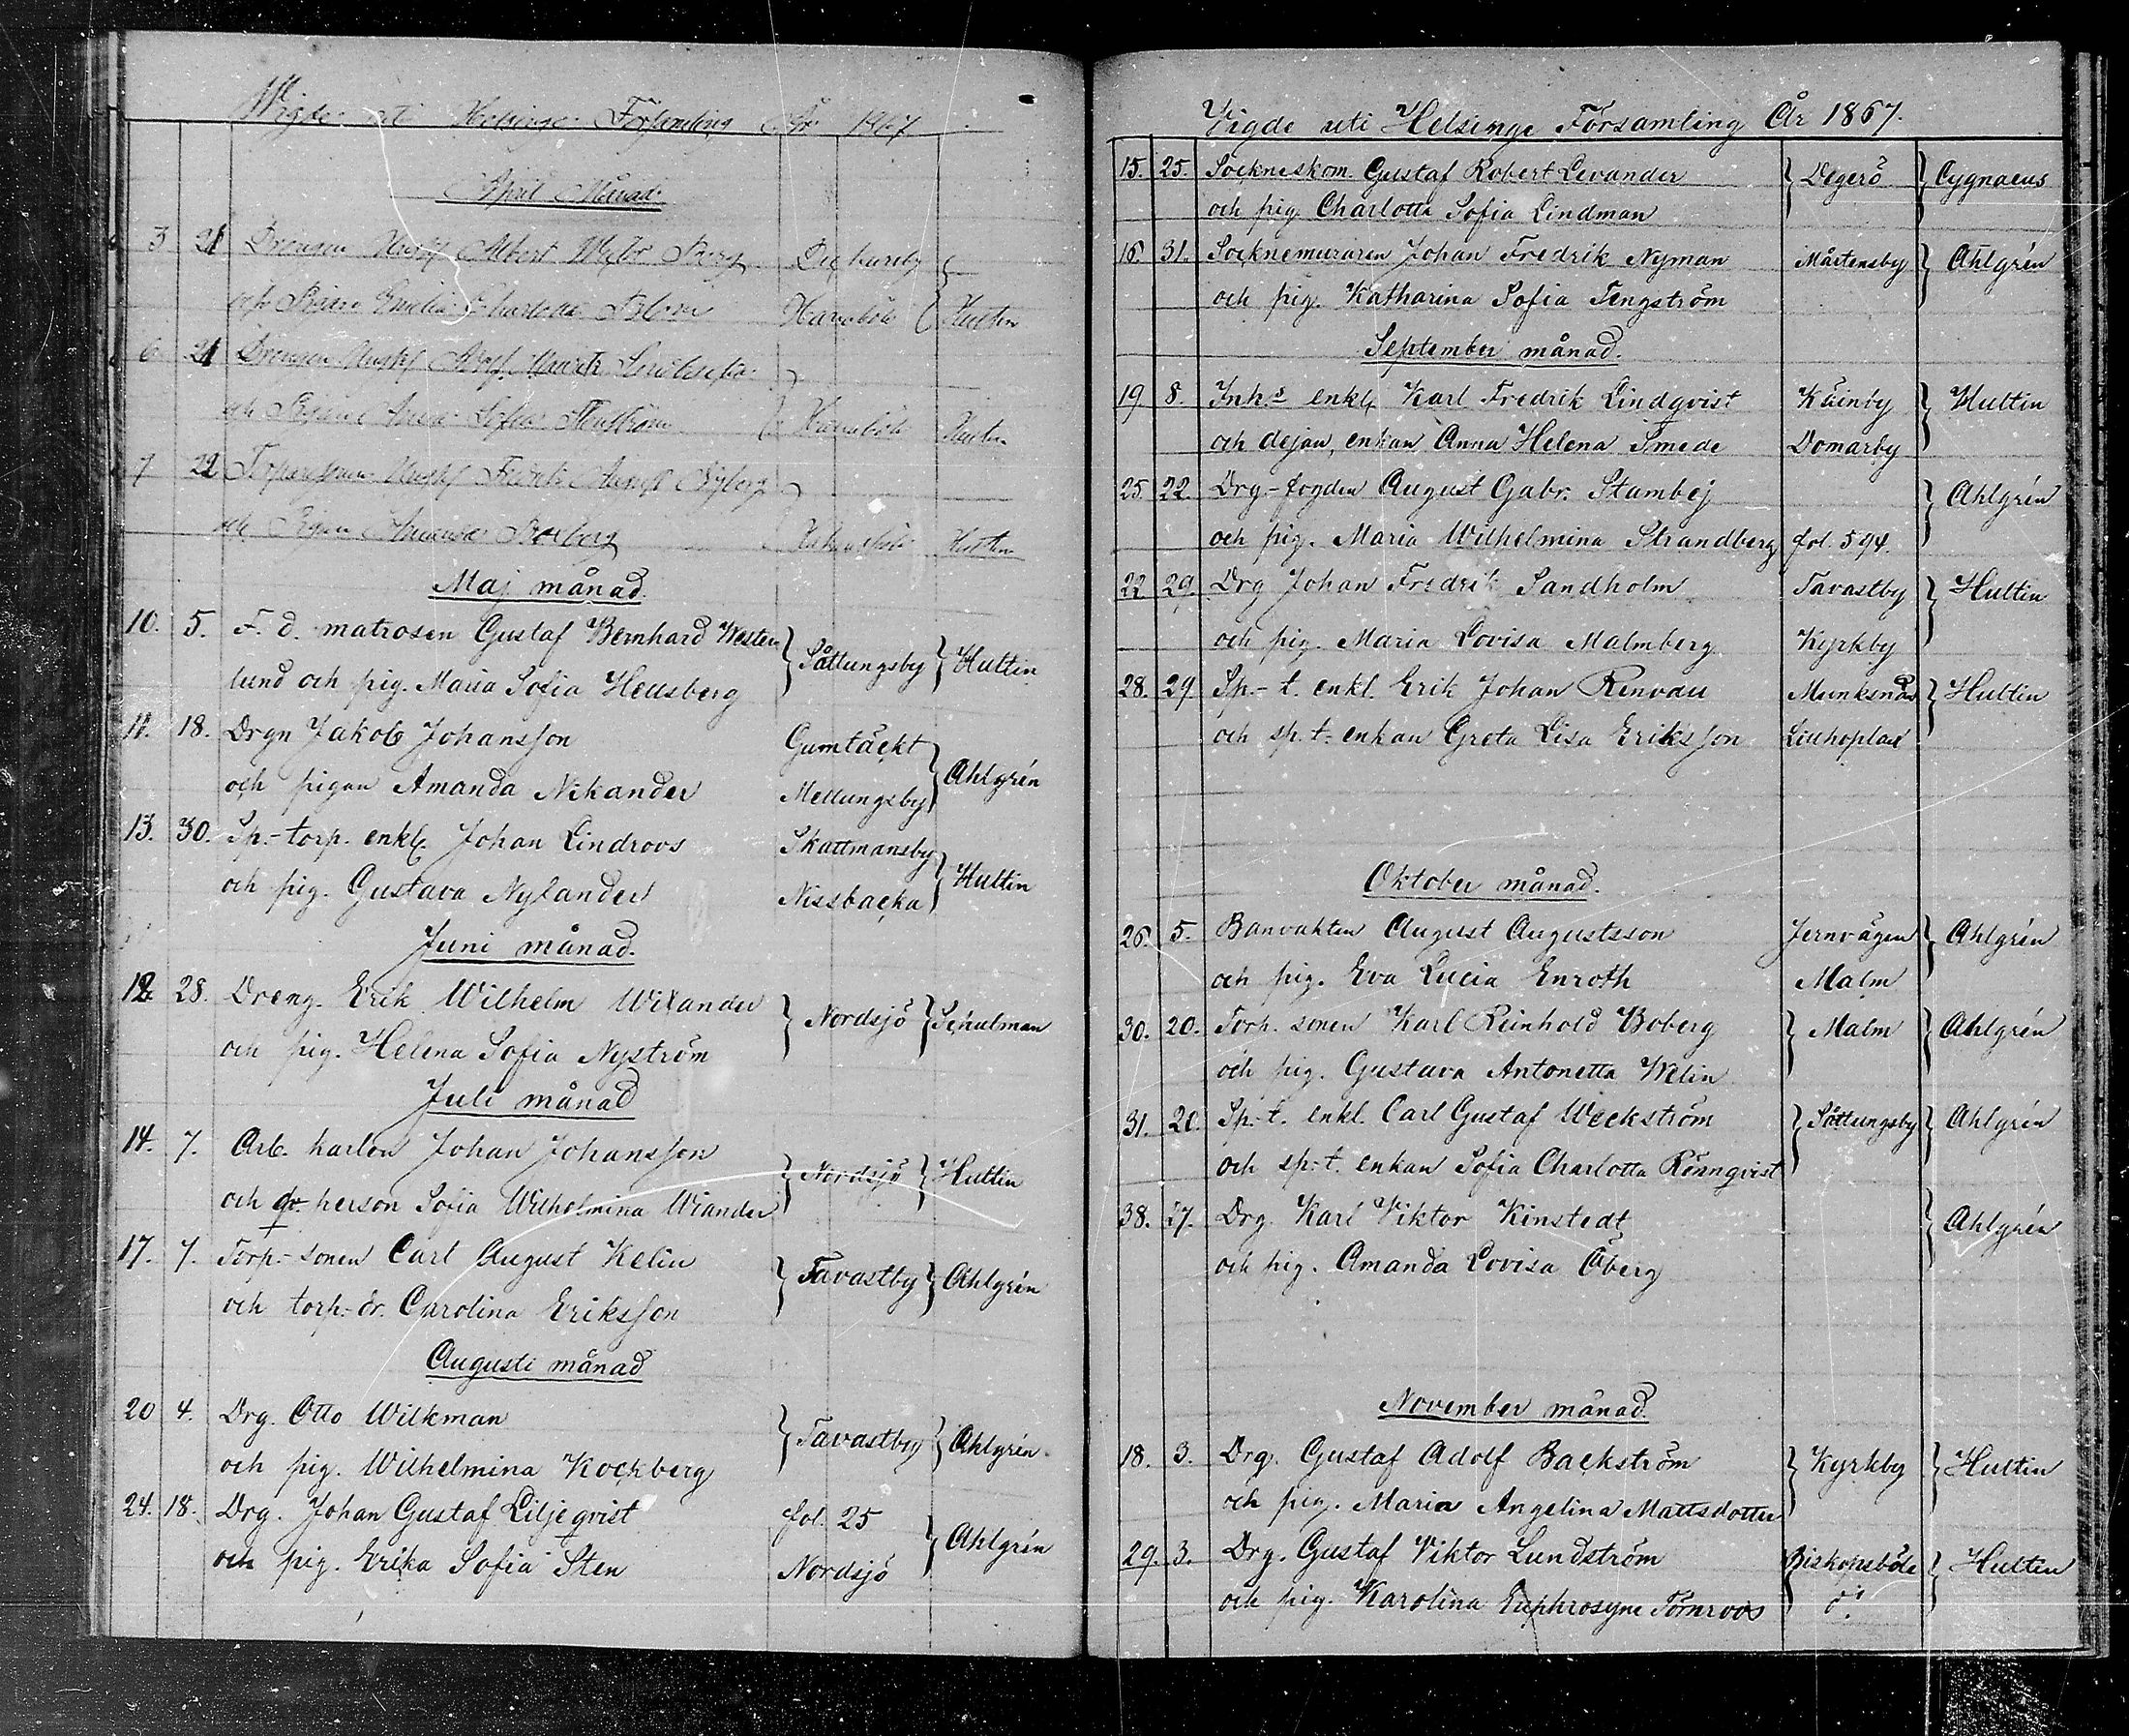 Wigde uti Helsinge Församling År 1867.
April Månad.
3 21 Drengen Albert Berg
och Pigan Emilia Charlotta Hanaböle Hultin
6 21 Drengen
och Pigan Anna Sofia Hanaböle Hultin
7 22 Fredrik Nyberg
och Pigan Amanda Boxberg Hultin
Maj månad.
10. 5. F. d. matrosen Gustaf Bernhard Westen
lund och pig. Maria Sofia Heusberg Såttungsby Hultin
11. 18. Drgn Jakob Johansson Gumtäckt
och pigan Amanda Nikander Mellungsby Ahlgrén
13. 30. Sp.-torp. enkl. Johan Lindroos Skattmansby
och pig. Gustava Nylander Nissbacka Hultin
Juni månad.
12. 28. Dreng. Erik Wilhelm Wilander Nordsjö Schulman
och pig. Helena Sofia Nyström
Juli månad
14. 7. Arb. karlen Johan Johansson
och qv. person Sofia Wilhelmina Wiander Nordsjö Hultin
17. 7. Torp.-sonen Carl August Kelin
och torp.-dr. Carolina Eriksson Tavastby Ahlgrén
Augusti månad
20 4. Drg. Otto Wilkman
och pig. Wilhelmina Kockberg Tavastby Ahlgrén.
24. 18. Drg. Johan Gustaf Liljeqvist fol. 25
och pig. Erika Sofia Sten Nordsjö Ahlgrén
Vigde uti Helsinge Församling År 1867.
15. 25. Sockneskom. Gustaf Robert Levander Degerö Cygnaeus
och pig. Charlotta Sofia Lindman
16. 31. Socknemuraren Johan Fredrik Nyman Mårtensby Ahlgrén
och pig. Katharina Sofia Tengström
September månad.
19 8. Inh.s enkl. Karl Fredrik Lindqvist Käinby Hultin
och dejan, enkan Anna Helena Smede Domarby
25. 22. Drg-fogden August Gabr. Stambej Ahlgrén
och pig. Maria Wilhelmina Strandberg fol. 594.
22 29. Drg Johan Fredrik Sandholm Tavastby Hultin
och pig. Maria Lovisa Malmberg Kyrkby
28. 29. Sp.-t. enkl. Erik Johan Renvau Munksnäs Hultin
och sp. t. enkan Greta Lisa Eriksson
Oktober månad.
26. 5. Banvakten August Augustsson Jernvägen Ahlgrén
och pig. Eva Lucia Enroth Malm
30. 20. Torp. sonen Karl Reinhold Boberg Malm Ahlgrén
och pig. Gustava Antonetta Welin
31. 20. Sp.-t. enkl. Carl Gustaf Weckström Såttungsby Ahlgrén
och sp.-t. enkan Sofia Charlotta Rönnqvist
38. 27. Drg. Karl Viktor Kinstedt Ahlgrén
och pig. Amanda Lovisa Öberg
November månad.
18. 3. Drg. Gustaf Adolf Backström Kyrkby Hultin
och pig. Maria Angelina Mattsdotter
29. 3. Drg. Gustaf Viktor Lundström Biskopsböle Hultin
och pig. Karolina Euphrosyne Törnroos d:o